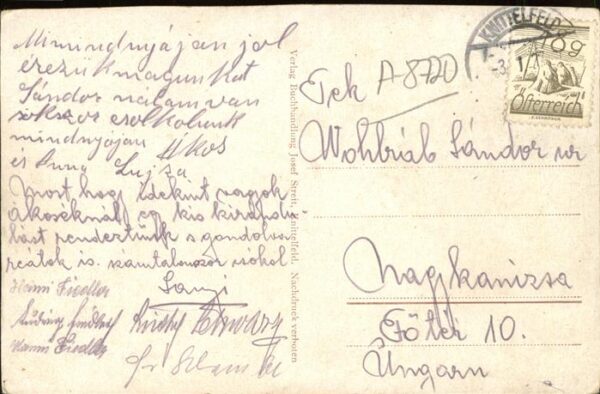 Mimindnyájan jól
érezük magunkat
Sándor nálam van
sokszor csolkolunk
mindnyájan Ákos
és Lujza
Most hogy idekint vagyok
ákoséknál egy kis kirándu
lást rendeztünk s gondolva
reátok is. számtalanszor csókol
Sanyi
Hanni Fiedler
Hanni Fiedler
Verlag Buchhandlung Josef Streit, Knittelfeld. Nachdruck verboten
KNITTELFELD
10g
Österreich
A-8720
Tek
Wohlráb Sándor úr
Nagykanizsa
Főtér 10.
Ungarn